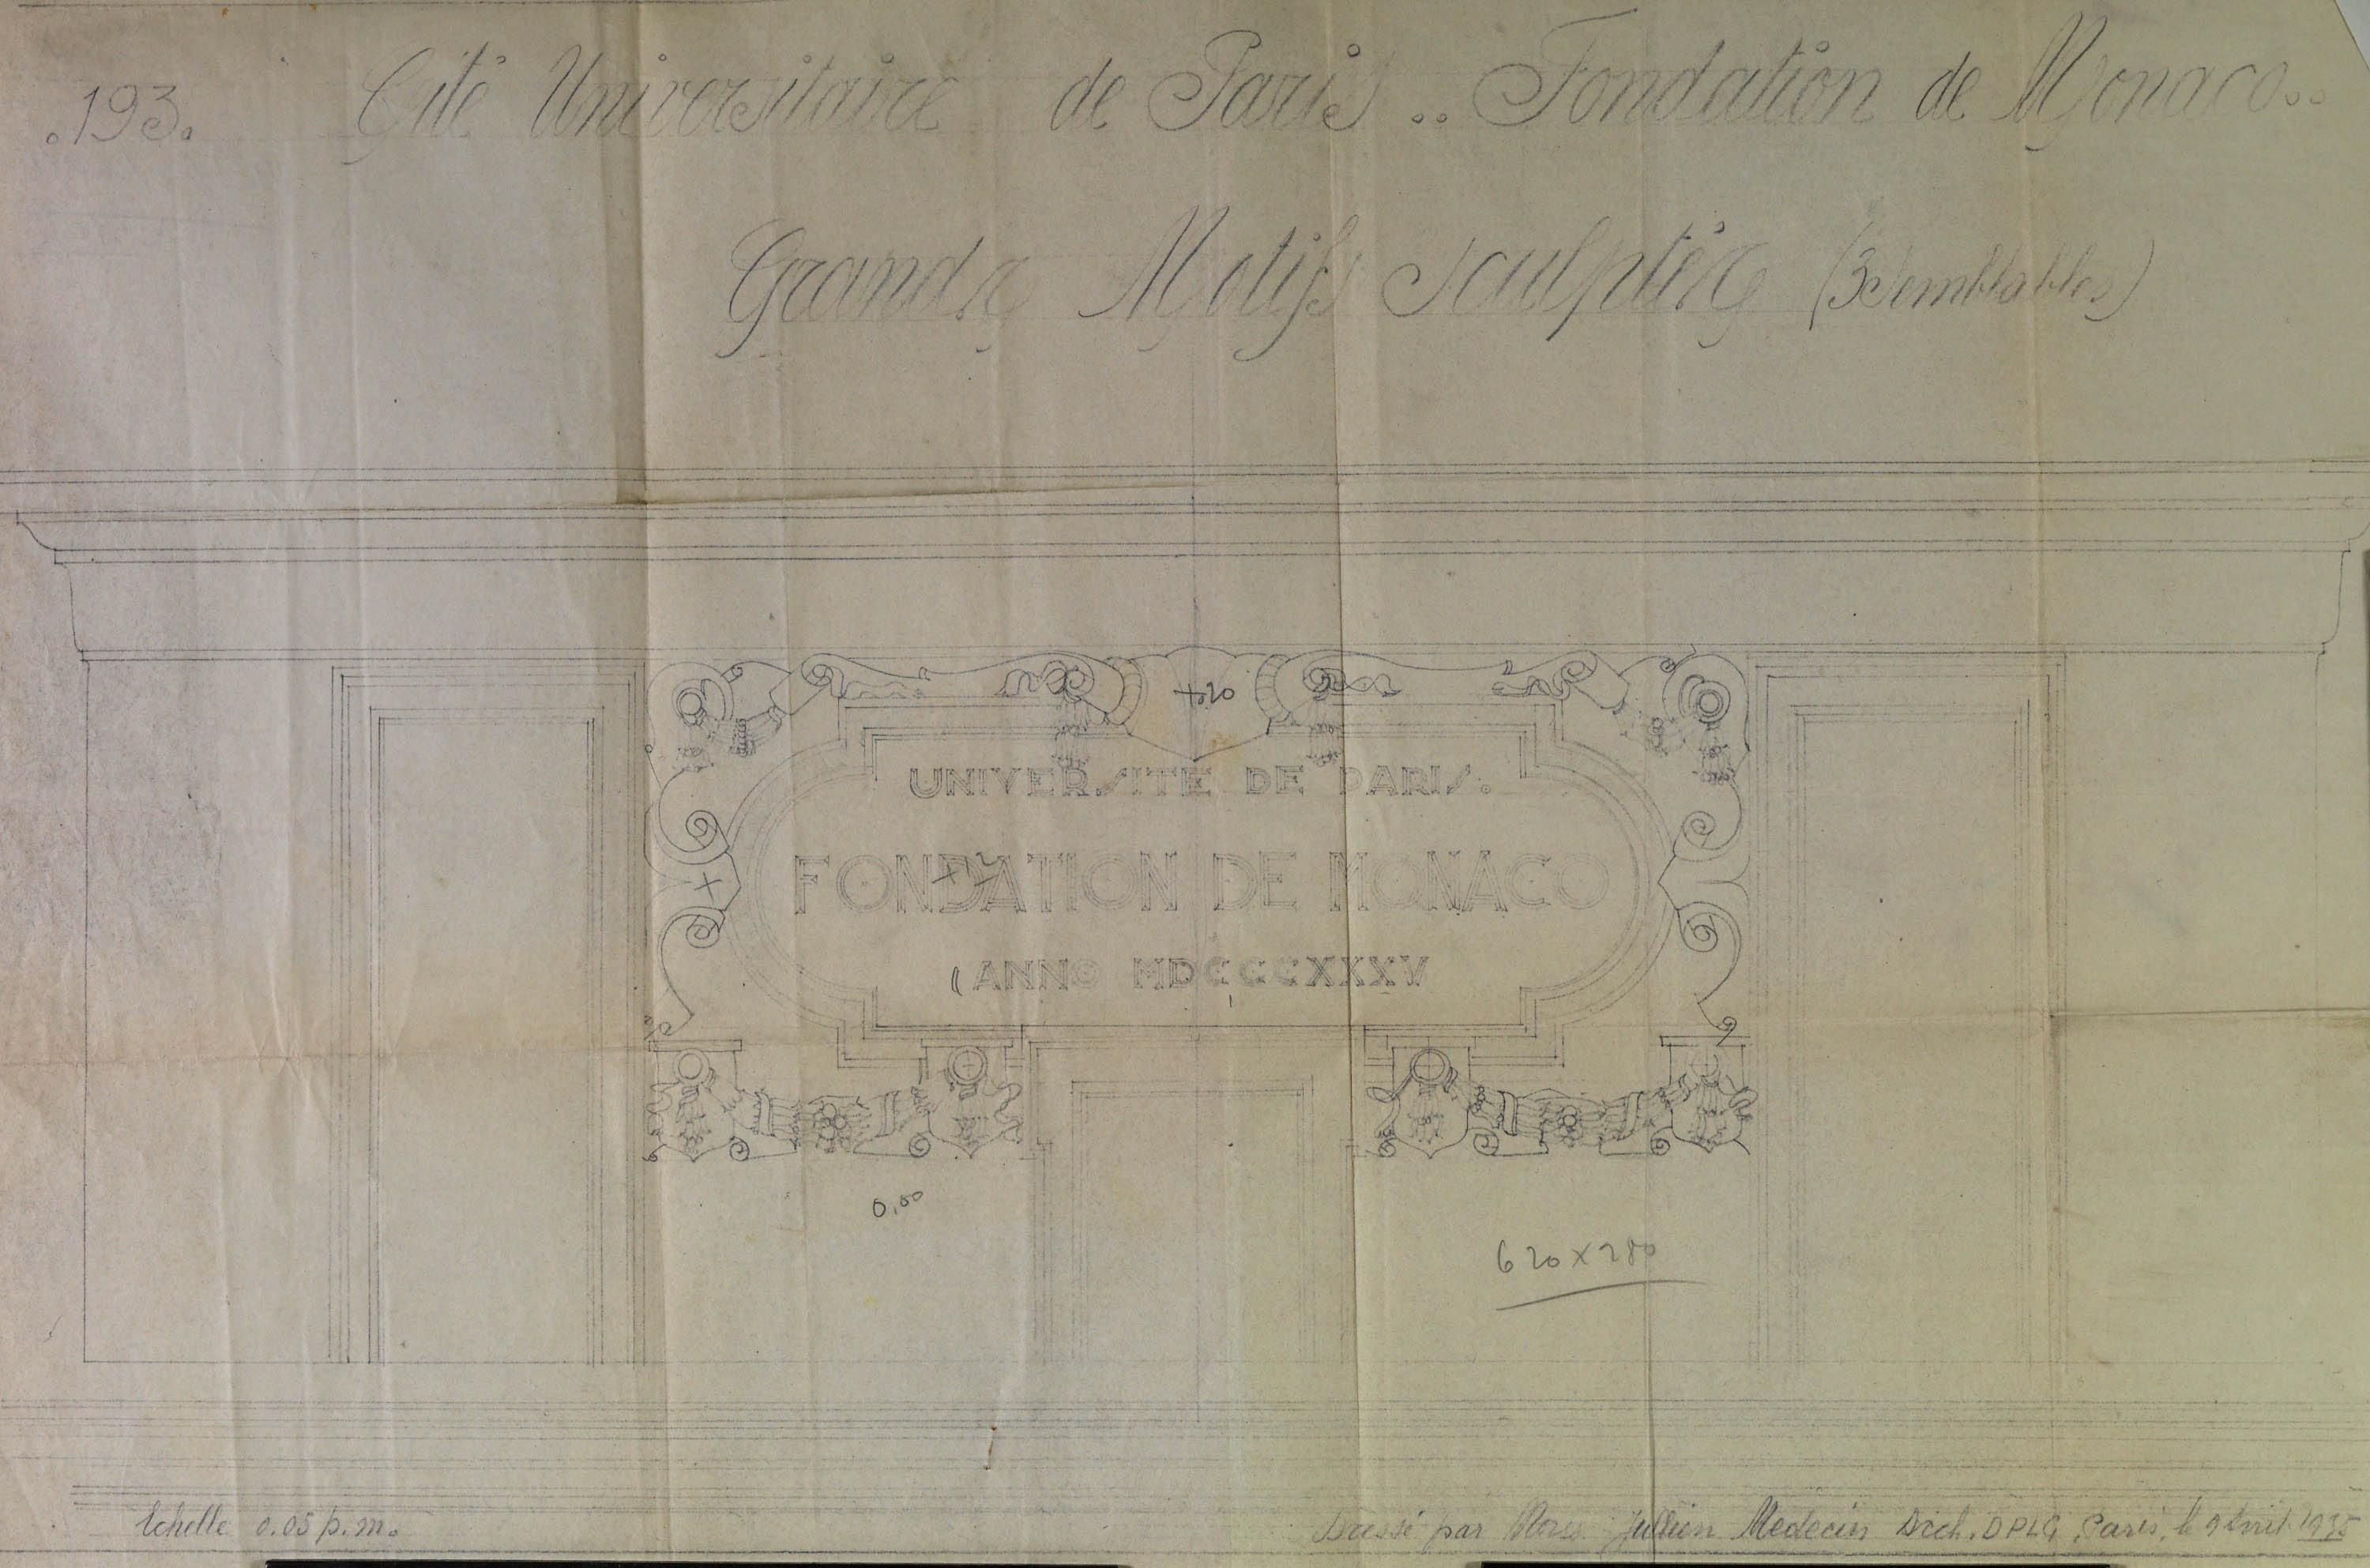 .193. Cité Universitaire de Paris .. Fondation de Monaco..
Grands Motifs Sculptés (3 Semblables)
+20
UNIVERSITE DE PARIS.
FONDATION DE MONACO
(ANNO MDCCCCXXXV
0,80
620 x 280
Echelle 0.05 p.m.
Dressé par Nous Jullien Medecin Arch. DPLG Paris, le 9 Avril 1935